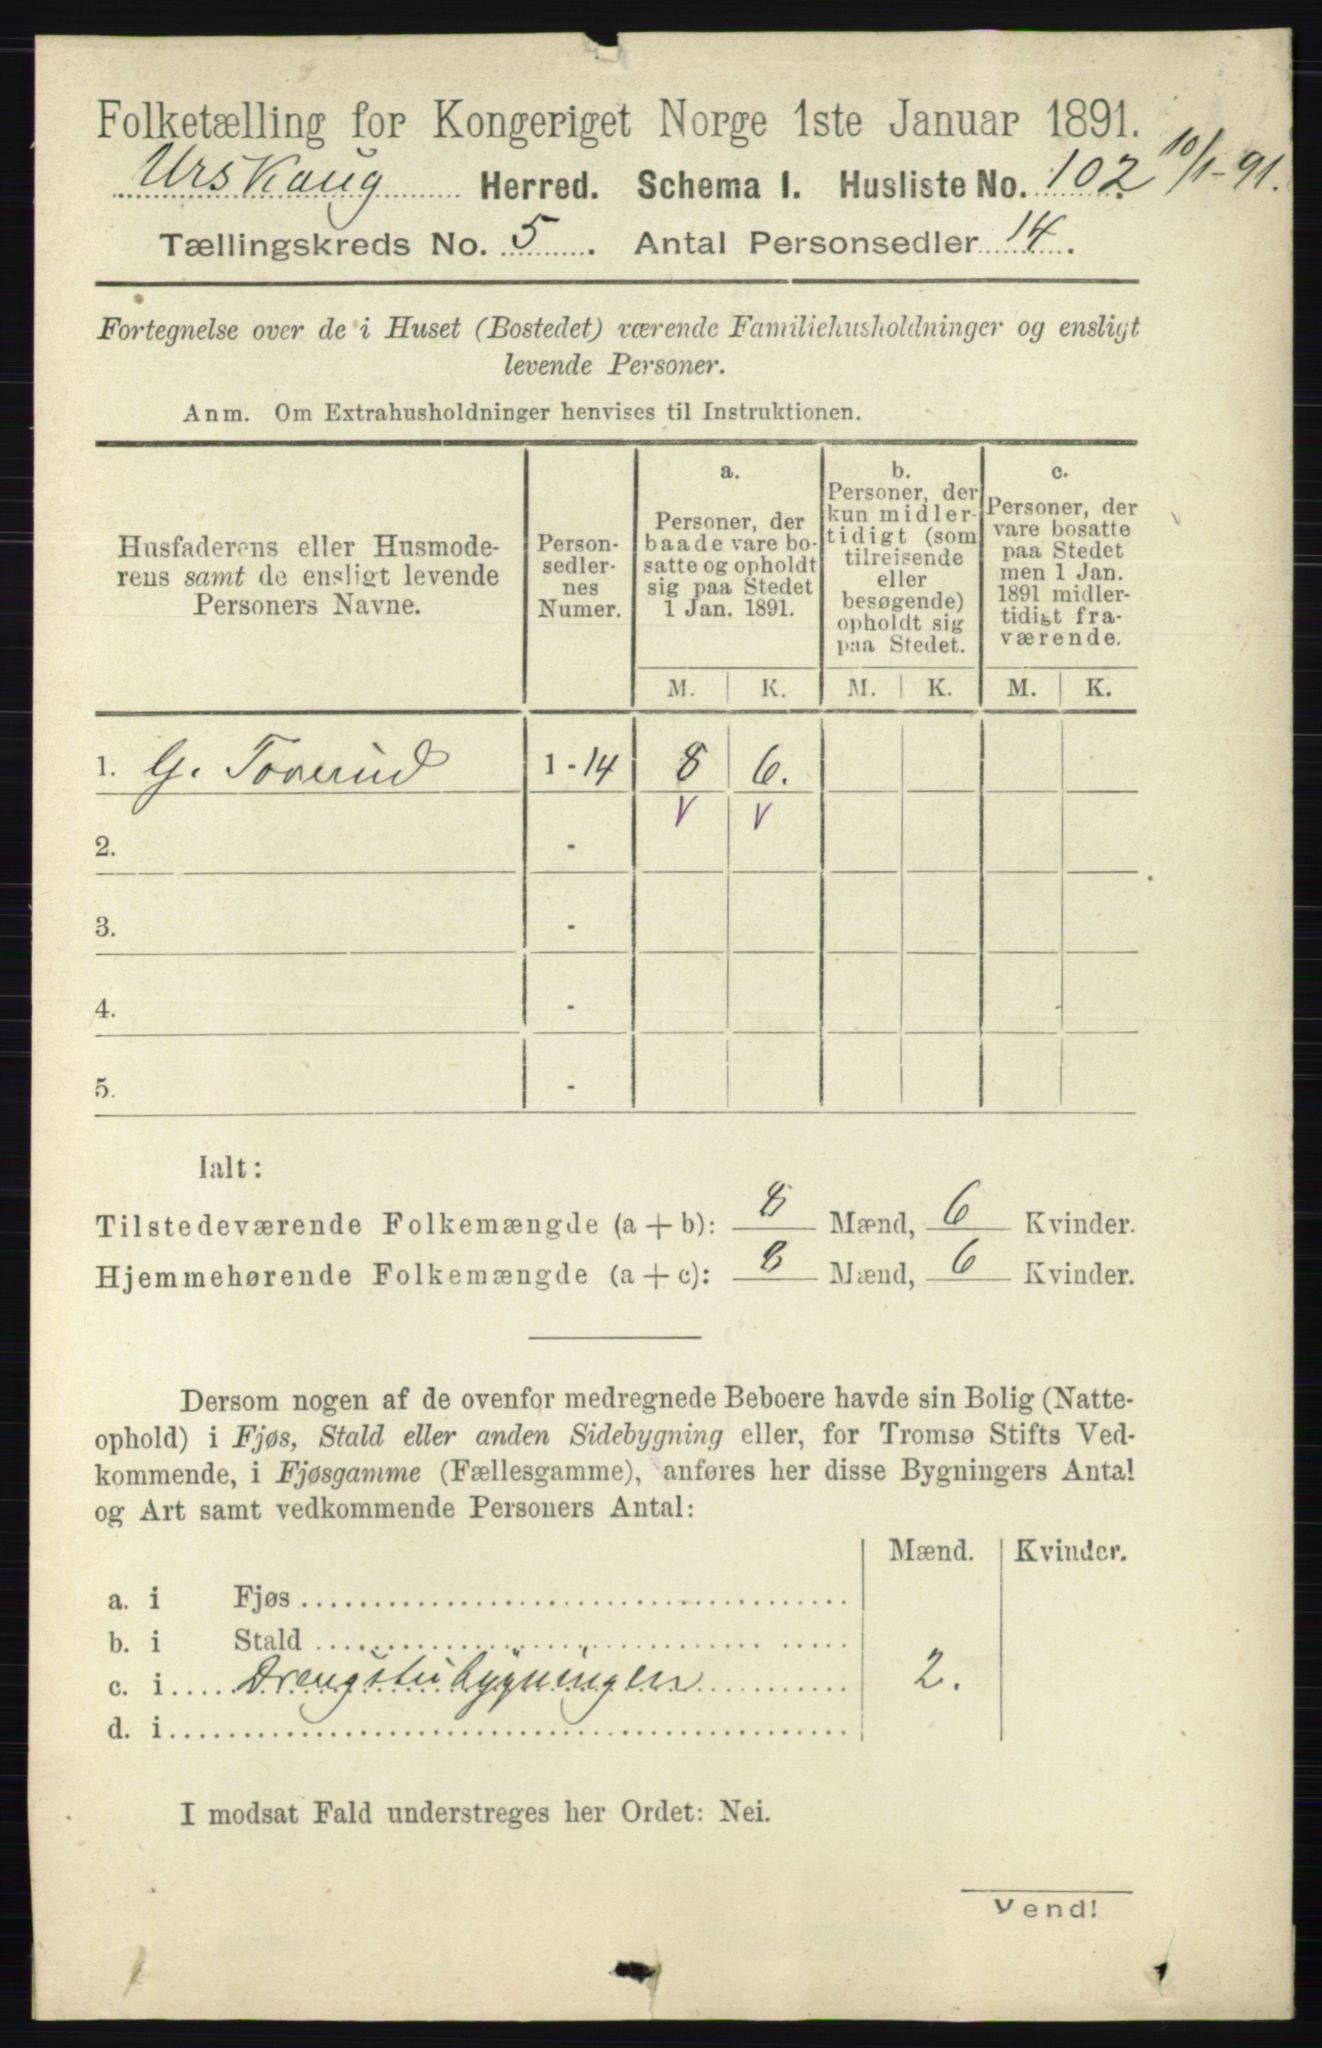 Folketælling for Kongeriget Norge 1ste Januar 1891.
Urskaug Herred. Schema I. Husliste No. 102 10/1-91.
Tællingskreds No. 5. Antal Personsedler 14.
Fortegnelse over de i Huset (Bostedet) værende Familiehusholdninger og ensligt
levende Personer.
Anm. Om Extrahusholdninger henvises til Instruktionen.
Husfaderens eller Husmode-
rens samt de ensligt levende
Personers Navne.
Person-
sedler-
nes
Numer.
a.
Personer, der
baade vare bo-
satte og opholdt
sig paa Stedet
1 Jan. 1891.
b.
Personer, der
kun midler-
tidigt (som
tilreisende
eller
besøgende)
opholdt sig
paa Stedet.
c.
Personer, der
vare bosatte
paa Stedet
men 1 Jan.
1891 midler-
tidigt fra-
værende.
M. K. M. K. M. K.
1. G. Toverud 1 - 14 8 6.
V V
2. -
3. -
4. -
5. -
Ialt:
Tilstedeværende Folkemængde (a + b): 8 Mænd, 6 Kvinder.
Hjemmehørende Folkemængde (a + c): 8 Mænd, 6 Kvinder.
Dersom nogen af de ovenfor medregnede Beboere havde sin Bolig (Natte-
ophold) i Fjøs, Stald eller anden Sidebygning eller, for Tromsø Stifts Ved-
kommende, i Fjøsgamme (Fællesgamme), anføres her disse Bygningers Antal
og Art samt vedkommende Personers Antal:
Mænd. Kvinder.
a. i Fjøs
b. i Stald
c. i Drengstubygningen 2.
d. i
I modsat Fald understreges her Ordet: Nei.
Vend!